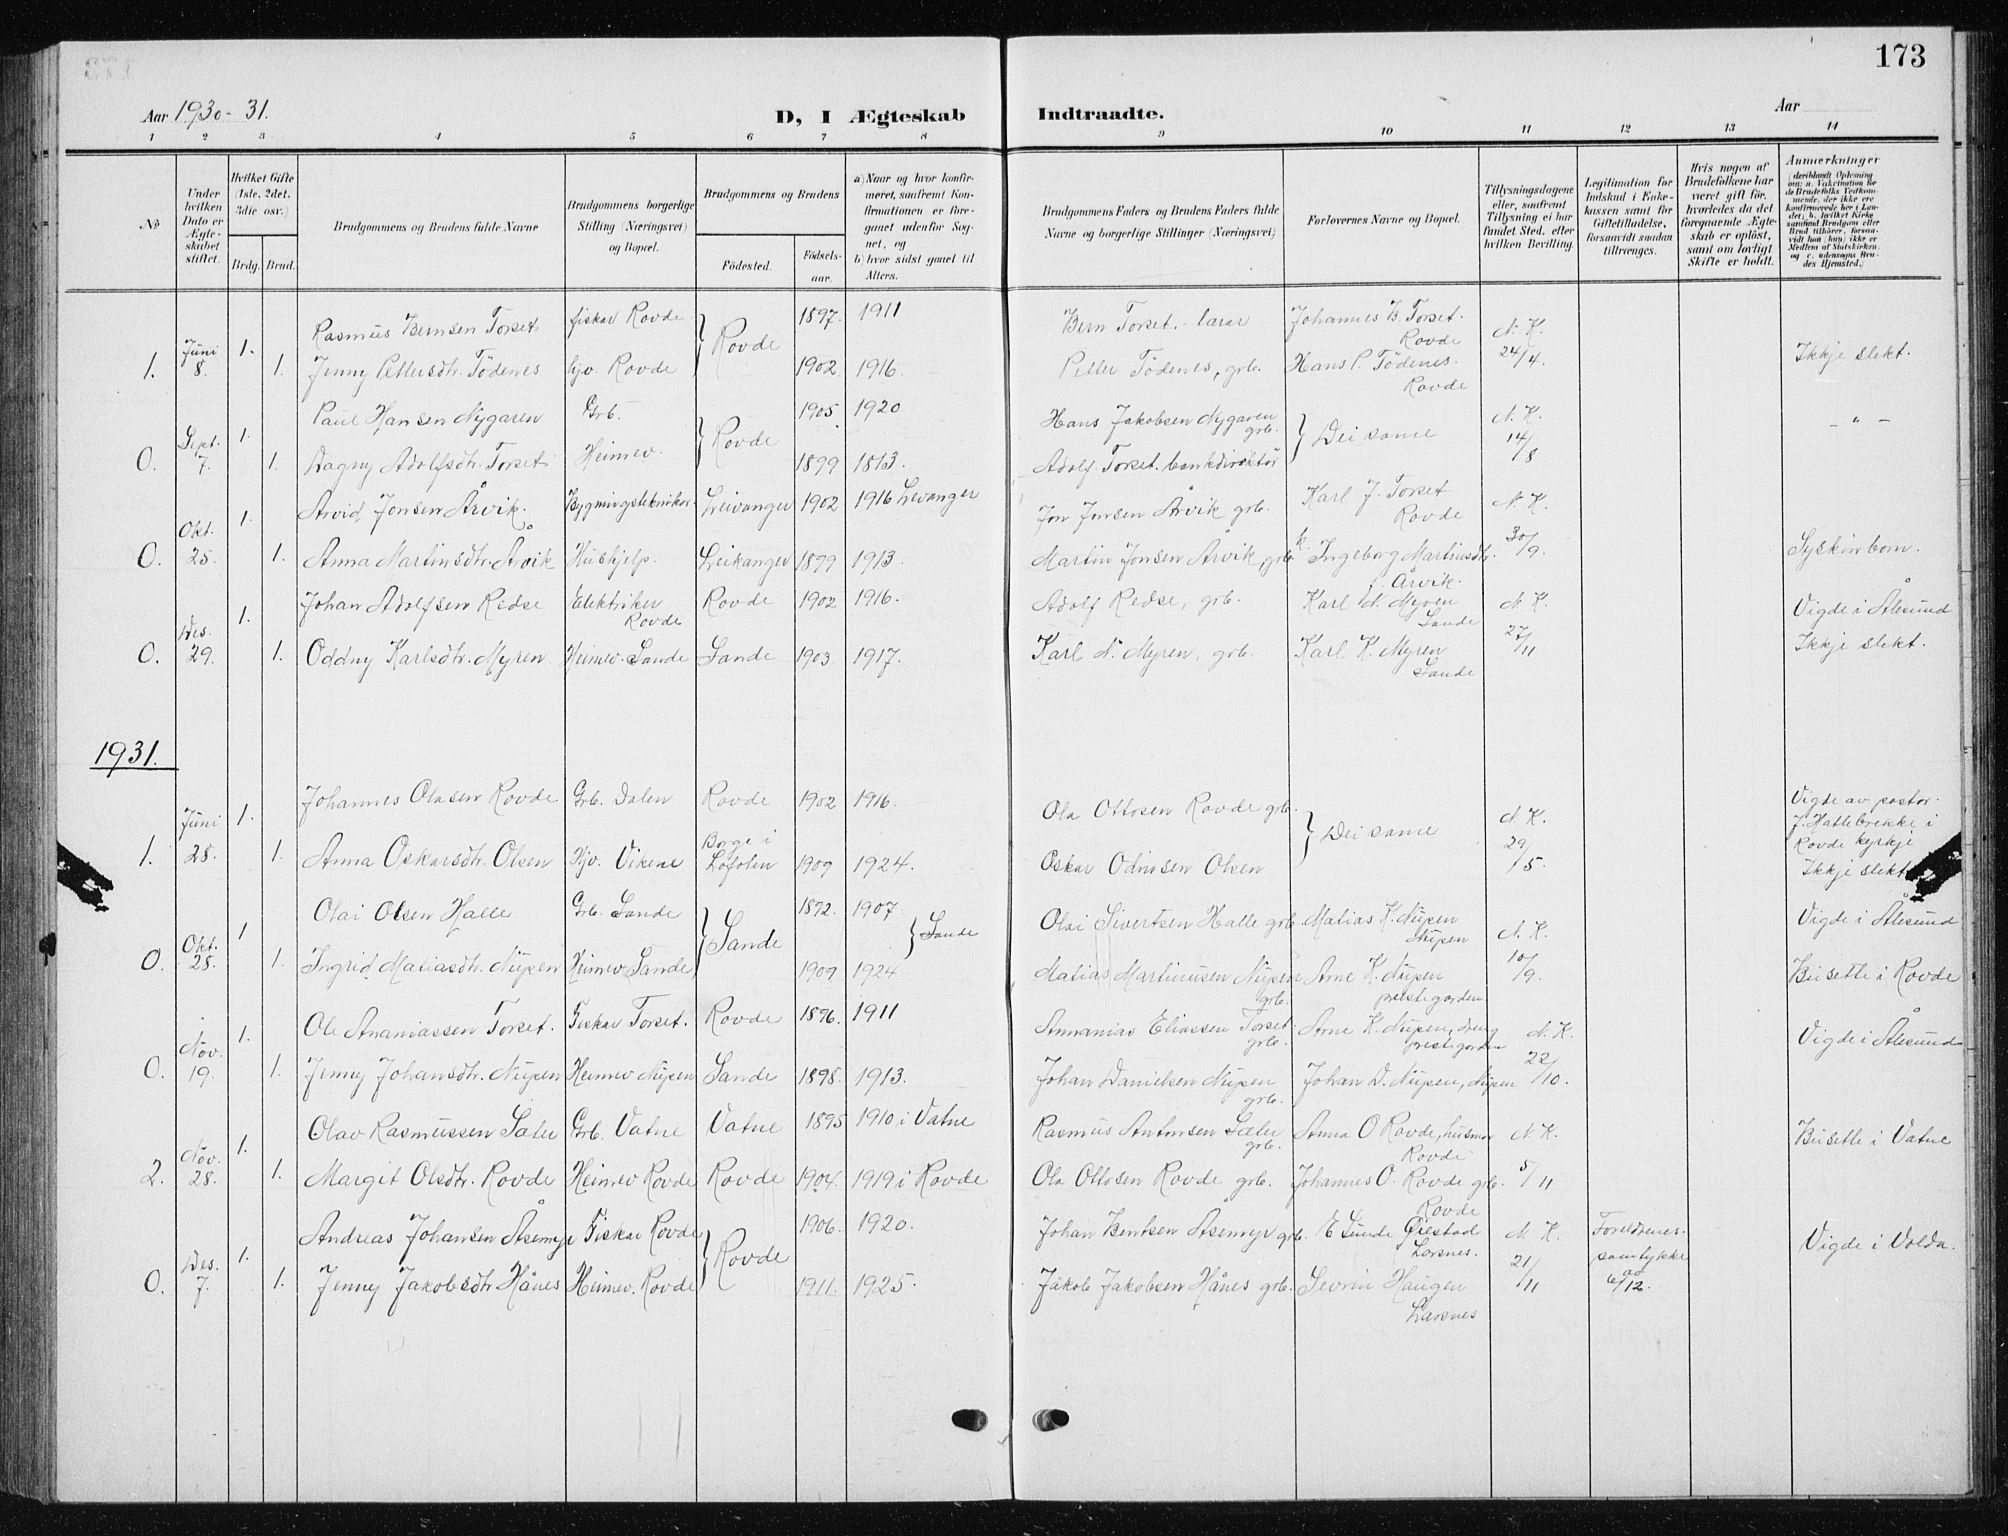 173
Aar 1930-31. D, I Ægteskab Indtraadte. Aar
1 2 3 4 5 6 7 8 9 10 11 12 13 14
No
Under hvilken Dato er Ægteskabet stiftet.
Hvilket Gifte (1ste, 2det, 3die osv.)
Brdg. Brud.
Brudgommens og Brudens fulde Navne
Brudgommens borgerlige Stilling (Næringsvei) og Bopæl.
Brudgommens og Brudens
Födested. Födselsaar.
a) Naar og hvor konfirmeret, saafremt Konfirmationen er foregaaet udenfor Sognet, og
b) hvor sidst gaaet til Alters.
Brudgommens Faders og Brudens Faders fulde Navne og borgerlige Stillinger (Næringsvei)
Forlovernes Navne og Bopæl.
Tillysningsdagene eller, saafremt Tillysning ei har fundet Sted, efter hvilken Bevilling.
Legitimation for Indskud i Enkekassen samt for Giftetilladelse, forsaavidt saadan tiltrænges.
Hvis nogen af Brudefolkene har været gift för, hvorledes da det foregaaende Ægteskab er oplöst, samt om lovligt Skifte er holdt.
Anmærkninger
Rasmus Bernsen Torset fiskar Rovde } Rovde 1897. 1911 Bern Torset. - lærar Johannes B. Torset. Rovde N. K.
1. Juni 8. 1. 1. Jenny Pettersdtr. Tödenes hjv. Rovde 1902 1916 Petter Tödenes, grb. Hans P. Tödenes. Rovde 24/4. Ikkje slekt.
Paul Hansen Nygaren Grb. } Rovde 1905 1920 Hans Jakobsen Nygaren grb. } Dei same N. K. - " -
0. Sept. 7. 1. 1. Dagny Adolfsdtr. Torset Heimev. 1899 1813. Adolf Torset. bankdirektör 14/8
Arvid Jonsen Årvik. Bygningsteknikar Leivanger 1902 1916 Levanger Jon Jonsen Årvik grb. Karl J. Torset Rovde N. K.
0. Okt. 25. 1. 1. Anna Martinsdtr. Årvik Hushjelp. Leikanger 1899 1913. Martin Jonsen Årvik, grb. Ingeborg Martinsdtr. Årvik. 30/9. Syskinborn.
Johan Adolfsen Redse Elektriker Rovde Rovde 1902 1916. Adolf Redse, grb. Karl N. Myren Sande N. K. Vigde i Ålesund
0. Des. 29. 1. 1. Oddny Karlsdtr. Myren Heimev. Sande Sande 1903 1917. Karl N. Myren, grb. Karl K. Myren Sande 27/11 Ikkje slekt.
1931.
Johannes Olasen Rovde Grb. Dalen Rovde 1902 1916 Ola Ottosen Rovde grb. } Dei same N. K. Vigde av pastor J. Hattebrekke i Rovde kyrkje
1. Juni 28. 1. 1. Anna Oskarsdtr. Olsen Hjv. Vikene Borge i Lofoten 1909 1924. Oskar Odinsen Olsen 29/5 Ikkje slekt
Olai Olsen Halle Grb. Sande } Sande 1892. 1907 } Sande Olai Sivertsen Halle grb. Matias K. Nupen Nupen N. K. Vigde i Ålesund
0. Okt. 28. 1 1. Ingrid Matiasdtr. Nupen Heimev Sande 1909 1924 Matias Martinusen Nupen grb. Arne K. Nupen prestegarden 10/9. Busette i Rovde
Ole Ananiassen Torset. Fiskar Torset. Rovde 1896. 1911 Annanias Eliassen Torset grb. Arne K. Nupen, dreng prestegarden N. K. Vigde i Ålesund
0. Nov. 19. 1. 1. Jenny Johansdtr. Nupen Heimev Nupen Sande 1898. 1913. Johan Danielsen Nupen grb. Johan D. Nupen, Nupen 22/10.
Olav Rasmussen Sæter Grb. Vatne Vatne 1895 1910 i Vatne Rasmus Antonsen Sæter grb. Anna O Rovde, husmor Rovde N. K. Busette i Vatne
2. Nov. 28. 1. 1. Margit Olsdtr. Rovde Heimev Rovde Rovde 1904. 1919 i Rovde Ola Ottosen Rovde grb. Johannes O. Rovde grb. Rovde 5/11
Andreas Johansen Åsemyr Fiskar Rovde } Rovde 1906. 1920. Johan Bentsen Åsemyr grb. E Lunde Öiestad Larsnes. N. K. Foreldrenes samtykke av 6/12. Vigde i Volda.
0. Des. 7. 1. 1. Jenny Jakobsdtr Hånes Heimev. Rovde 1911. 1925. Jakob Jakobsen Hånes grb. Sevrin Haugen Larsnes 21/11